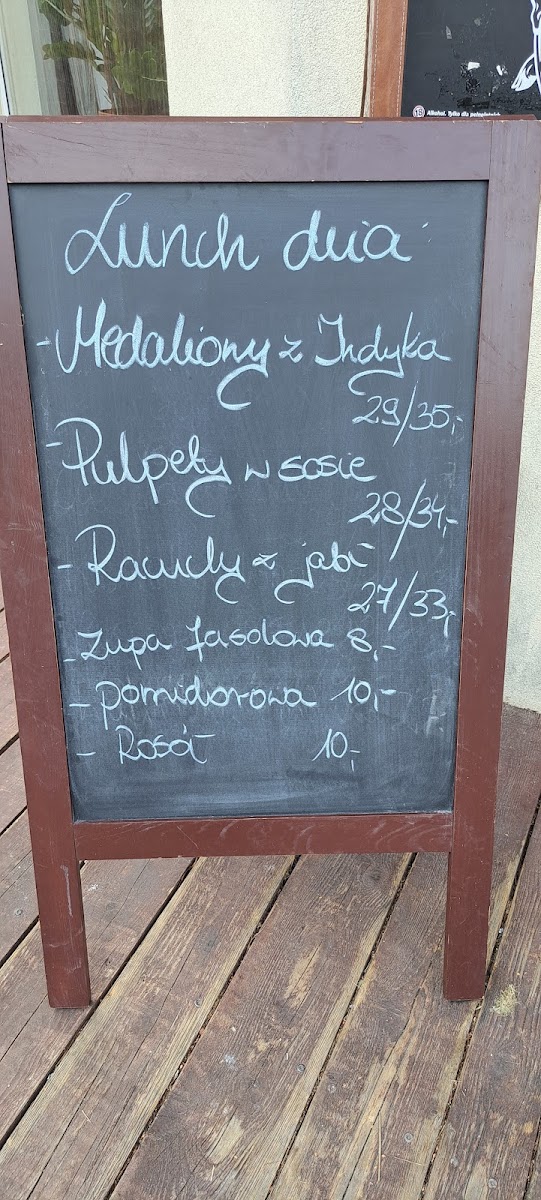 18 Alkohol. Tylko dla pełnoletnich
Lunch dnia
- Medaliony z Indyka
29/35,-
- Pulpety w sosie
28/34,-
- Racuchy z jabł
27/33,-
- Zupa fasolowa 8,-
- pomidorowa 10,-
- Rosół 10,-